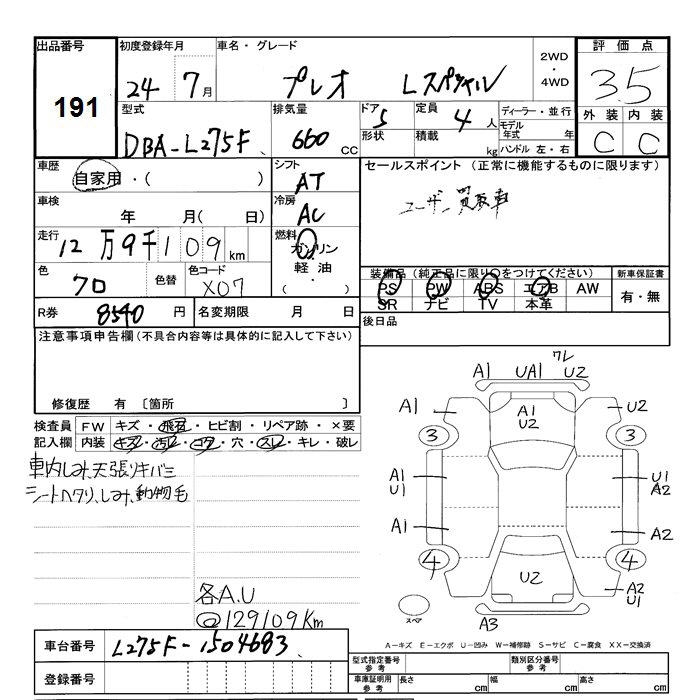 出品番号 初度登録年月 車名・グレード 2WD・4WD 評価点
191 24 7月 プレオ Lスペシャル 3.5
型式 排気量 ドア 定員 ディーラー・並行 外装 内装
DBA-L275F 660 CC 5 4人 モデル年式 年 C C
形状 積載 kg ハンドル 左・右
車歴 シフト セールスポイント (正常に機能するものに限ります)
自家用・( ) AT ユーザー買取車
車検 冷房
年 月( 日) AC
走行 燃料
12万9千109km ガソリン
色 色替 色コード 軽油 装備品 (純正品に限り○をつけてください) 新車保証書
クロ X07 ( ・ ) PS PW ABS エアB AW 有・無
SR ナビ TV 本革
R券 8540円 名変期限 月 日 後日品
注意事項申告欄(不具合内容等は具体的に記入して下さい)
修復歴 有 〔箇所 〕
検査員 FW キズ・飛石・ヒビ割・リペア跡・×要
記入欄 内装 キズ・汚れ・コゲ・穴・スレ・キレ・破レ
車内しみ、天張りキバミ
シートヘタリ、しみ、動物毛
各A.U
@129109Km
ワレ
A1 UA1 U2
A1 A1 U2 U2
3 3
A1 U1 U1 A2
A1 A2
4 4
U2 A2 U1
スペア A3
A-キズ E-エクボ U-凹み W-補修跡 S-サビ C-腐食 XX-交換済
車台番号 L275F-1504683
登録番号
型式指定番号 参考 類別区分番号 参考
車庫証明用 参考 長さ cm 幅 cm 高さ cm